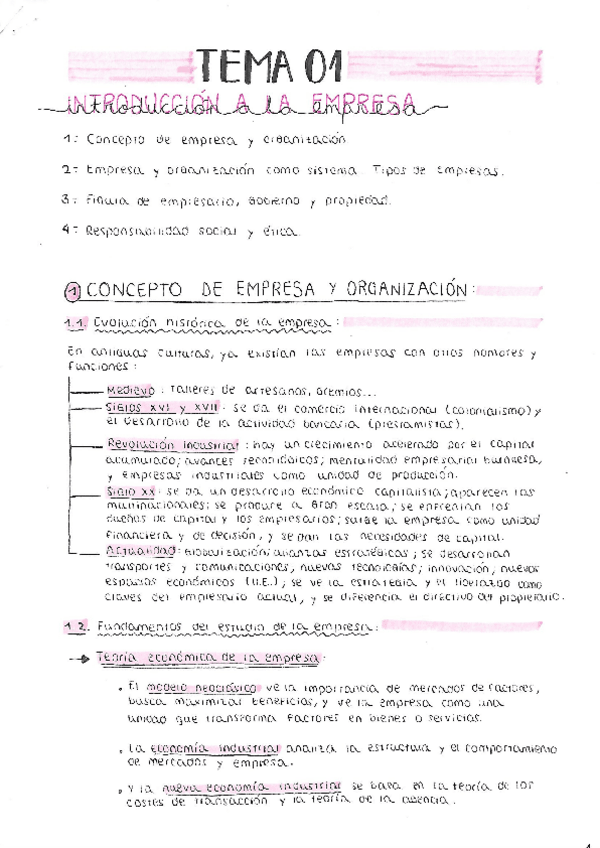 TEMA 01
INTRODUCCIÓN A LA EMPRESA
introducción a la empresa
1- Concepto de empresa y organización
2- Empresa y organización como sistema. Tipos de empresas.
3- Figura de empresario, gobierno y propiedad.
4- Responsabilidad social y ética.
1 CONCEPTO DE EMPRESA Y ORGANIZACIÓN:
1.1. Evolución histórica de la empresa:
En antiguas culturas, ya existían las empresas con otros nombres y
funciones:
Medievo: Talleres de artesanos, gremios...
Siglos XVI y XVII: se da el comercio internacional (colonialismo) y
el desarrollo de la actividad bancaria (prestamistas).
Revolución industrial: hay un crecimiento acelerado por el capital
acumulado; avances tecnológicos; mentalidad empresarial burguesa,
y empresas industriales como unidad de producción.
Siglo XX: se da un desarrollo económico capitalista; aparecen las
multinacionales: se produce a gran escala; se enfrentan los
dueños de capital y los empresarios; surge la empresa como unidad
financiera y de decisión, y se dan las necesidades de capital.
Actualidad: globalización; alianzas estratégicas; se desarrollan
transportes y comunicaciones, nuevas tecnologías; innovación; nuevos
espacios económicos (U.E.); se ve la estrategia y el liderazgo como
claves del empresario actual, y se diferencia el directivo del propietario.
1.2. Fundamentos del estudio de la empresa:
→ Teoría económica de la empresa:
• El modelo neoclásico ve la importancia de mercados de factores,
busca maximizar beneficios, y ve la empresa como una
unidad que transforma factores en bienes o servicios.
• La economía industrial analiza la estructura y el comportamiento
de mercados y empresa.
• Y la nueva economía industrial se basa en la teoría de los
costes de transacción y la teoría de la agencia.